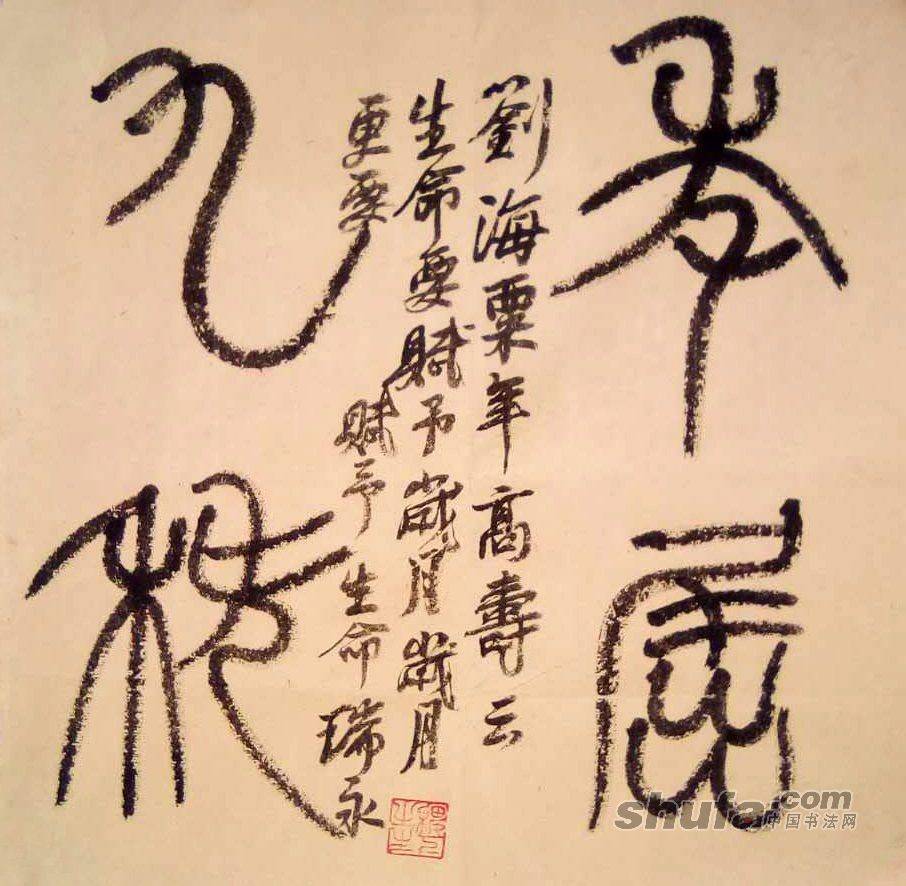 年届
劉海粟年高壽云
生命要賦予歲月歲月
更要賦予生命瑞永
九秩
shufa.com
中国书法网